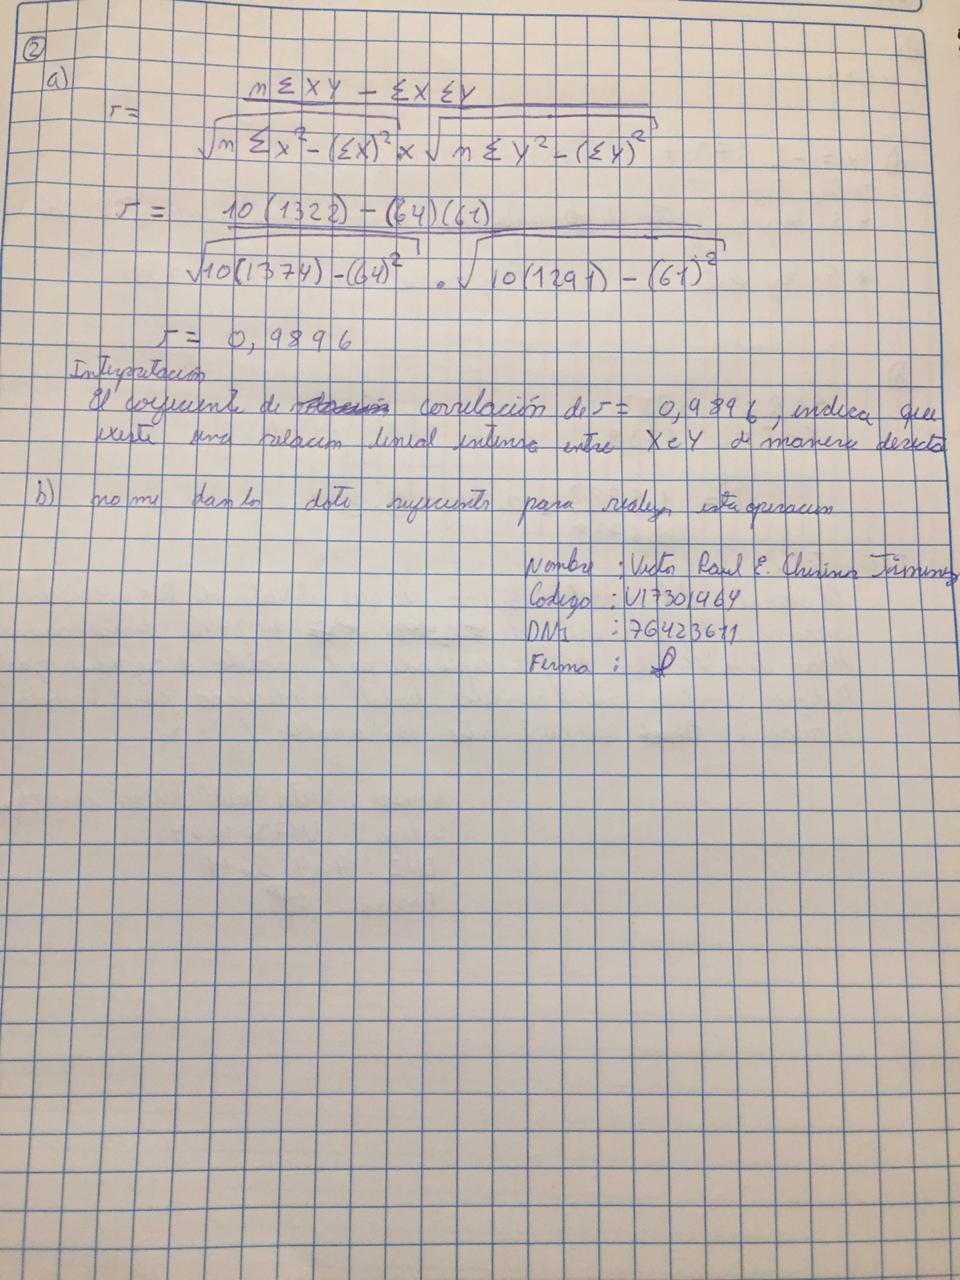 2
a)
r = n Σ X Y - Σ X Σ Y
√n Σ X² - (Σ X)² x √n Σ Y² - (Σ Y)²
r = 10 (1322) - (64) (61)
√10(1374) - (64)² . √10(1291) - (61)²
r = 0,9896
Interpretación
El coeficiente de correlación de r = 0,9896, indica que
existe una relacion lineal intensa entre X e Y de manera directa
b) no me dan los dato suficiente para realizar esta operacion
Nombre : Victor Raul E. Chirinos Jimenez
Codigo : U17301964
DNI : 76423611
Firma :